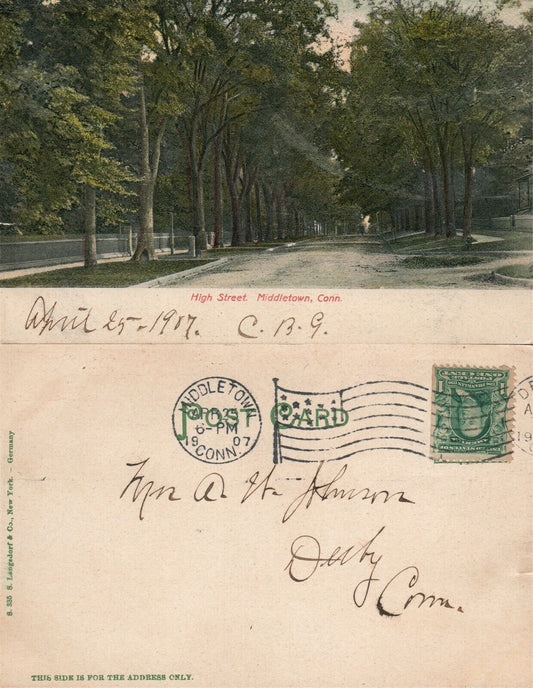 High Street. Middletown, Conn.
April 25-1907. C. B. G.
MIDDLETOWN
APR 25
6-PM
19 07
CONN.
POST CARD
Mrs A. W. Johnson
Derby
Conn.
S. 335 S. Langsdorf & Co., New York. - Germany
THIS SIDE IS FOR THE ADDRESS ONLY.